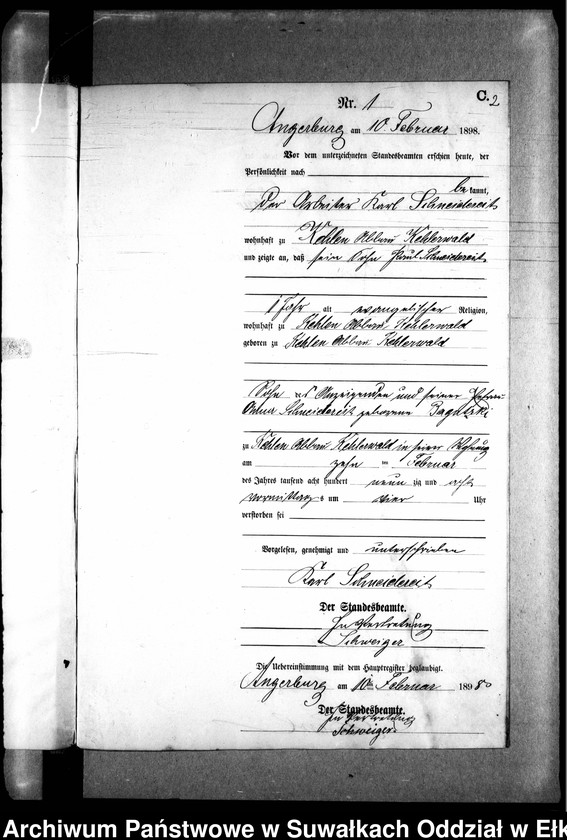 C.
2
Nr. 1
Angerburg am 10. Februar 1898.
Vor dem unterzeichneten Standesbeamten erschien heute, der
Persönlichkeit nach
be kannt,
der Arbeiter Karl Schneidereit
wohnhaft zu Kehlen Abbau Kehlerwald
und zeigte an, daß sein Sohn Paul Schneidereit
1 Jahr alt evangelischer Religion,
wohnhaft zu Kehlen Abbau Kehlerwald
geboren zu Kehlen Abbau Kehlerwald
Sohn des Anzeigenden und seiner Ehefrau
Schneidereit geborene
zu Kehlen Abbau Kehlerwald in seiner Wohnung
am zehn ten Februar
des Jahres tausend acht hundert neun zig und acht
Vormittag s um vier Uhr
verstorben sei
Vorgelesen, genehmigt und unterschrieben
Karl Schneidereit
Der Standesbeamte.
In Vertretung
Schweiger
Die Uebereinstimmung mit dem Hauptregister beglaubigt.
Angerburg am 10ten Februar 1898
Der Standesbeamte.
In Vertretung
Schweiger
Archiwum Państwowe w Suwałkach Oddział w Ełk